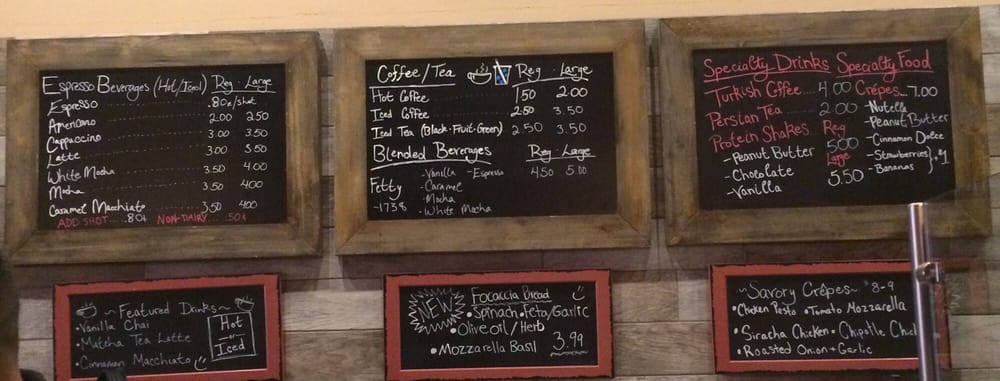 Espresso Beverages (Hot/Iced) Reg Large
Espresso .80¢/shot
Americano 2.00 2.50
Cappuccino 3.00 3.50
Latte 3.00 3.50
White Mocha 3.50 4.00
Mocha 3.50 4.00
Caramel Macchiato 3.50 4.00
ADD SHOT .80¢ NON-DAIRY .50¢
Coffee/Tea Reg Large
Hot Coffee 1.50 2.00
Iced Coffee 2.50 3.50
Iced Tea (Black-Fruit-Green) 2.50 3.50
Blended Beverages Reg Large
-Vanilla -Espresso 4.50 5.00
Fetty -Caramel
-1738 -Mocha
-White Mocha
Specialty Drinks Specialty Food
Turkish Coffee... 4.00 Crêpes... 7.00
Persian Tea 2.00 -Nutella
Protein Shakes Reg -Peanut Butter
-Peanut Butter 5.00 -Cinnamon Dolce
-Chocolate Large -Strawberries } .$1
-Vanilla 5.50 -Bananas
~Featured Drinks~
•Vanilla Chai Hot
•Matcha Tea Latte or
•Cinnamon Macchiato Iced
NEW Focaccia Bread
•Spinach/Feta/Garlic
•Olive oil/Herb
•Mozzarella Basil 3.99
~Savory Crêpes~ $8-9
•Chicken Pesto •Tomato Mozzarella
•Siracha Chicken •Chipotle
•Roasted Onion + Garlic